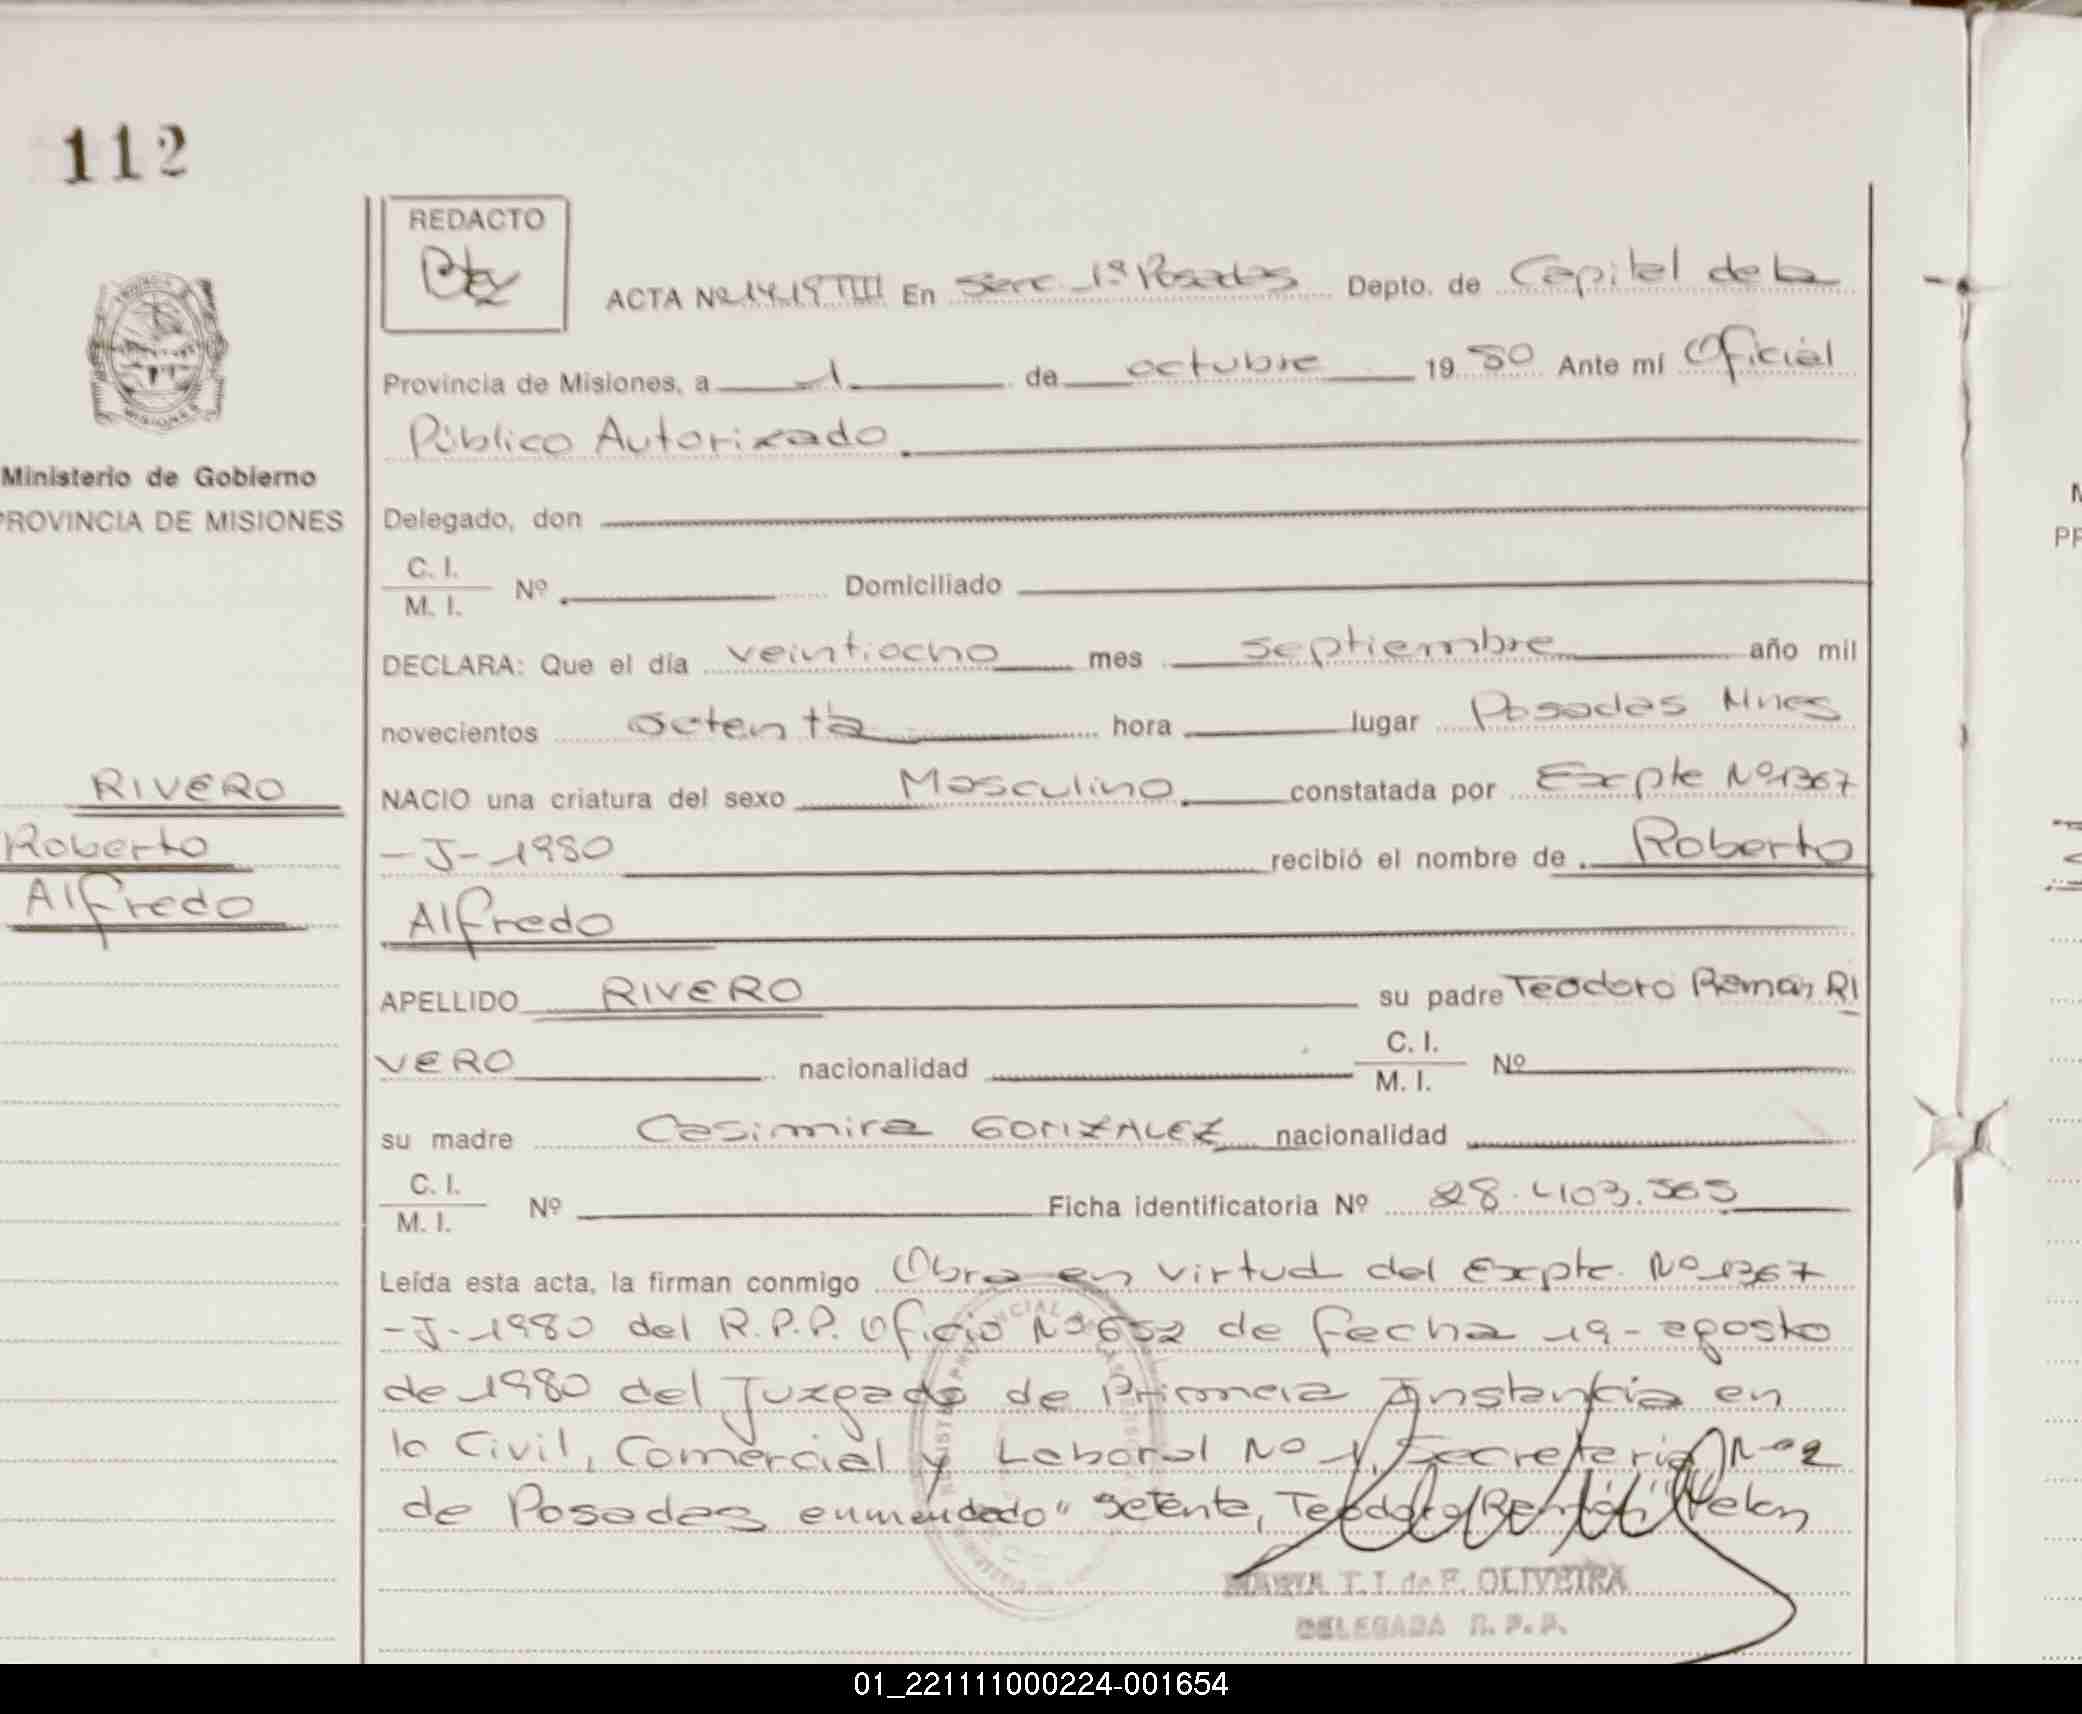 112
REDACTO
ACTA Nº 1419 TIII En Secc. 1ª Posadas Depto. de Capital de la
Provincia de Misiones, a 1 de octubre 1980 Ante mí Oficial
Público Autorizado
Ministerio de Gobierno
PROVINCIA DE MISIONES
Delegado, don
C. I.
M. I. Nº Domiciliado
DECLARA: Que el día veintiocho mes septiembre año mil
novecientos octenta hora lugar Posadas Mnes
RIVERO
Roberto
Alfredo
NACIO una criatura del sexo Masculino constatada por Expte Nº 1367
-J-1980 recibió el nombre de Roberto
Alfredo
APELLIDO RIVERO su padre Teodoro Ramón RI
VERO nacionalidad C. I.
M. I. Nº
su madre Casimira GONZALEZ nacionalidad
C. I.
M. I. Nº Ficha identificatoria Nº 28.403.565
Leída esta acta, la firman conmigo Obra en virtud del Expte. Nº 1367
-J-1980 del R.P.P. Oficio Nº 652 de fecha 19-agosto
de 1980 del Juzgado de Primera Instancia en
lo Civil, Comercial y Laboral Nº 1, Secretaria Nº 2
de Posadas enmendado "setenta, Teodoro Ramón" Valen
MARIA T. I. de F. OLIVEIRA
DELEGADA R. P. P.
01_221111000224-001654